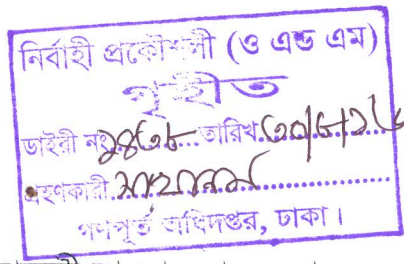 নির্বাহী প্রকৌশলী (ও এন্ড এম)
গৃহীত
ডাইরী নং ১৪৩৮ তারিখ ৩০/৮/১৬
গ্রহণকারী
গণপূর্ত অধিদপ্তর, ঢাকা।